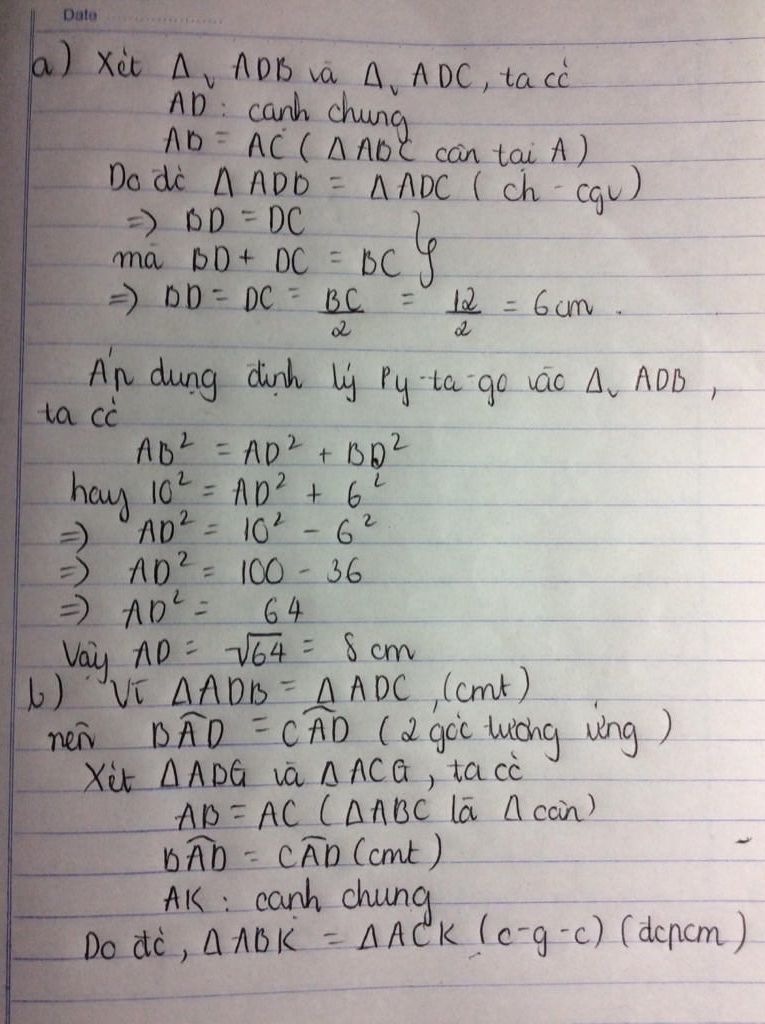 Date
a) Xét Δv ADB và Δv ADC, ta có
AD : cạnh chung
AB = AC ( ΔABC cân tại A )
Do đó ΔADB = ΔADC ( ch - cgv )
=> BD = DC
mà BD + DC = BC }
=> BD = DC = BC/2 = 12/2 = 6 cm .
Áp dụng định lý Py-ta-go vào Δv ADB ,
ta có
AB² = AD² + BD²
hay 10² = AD² + 6²
=> AD² = 10² - 6²
=> AD² = 100 - 36
=> AD² = 64
Vậy AD = √64 = 8 cm
b) Vì ΔADB = ΔADC , (cmt)
nên BÂD = CÂD ( 2 góc tương ứng )
Xét ΔABG và ΔACG , ta có
AB = AC ( ΔABC là Δ cân )
BÂD = CÂD (cmt)
AK : cạnh chung
Do đó , ΔABK = ΔACK (c-g-c) (dcpcm )